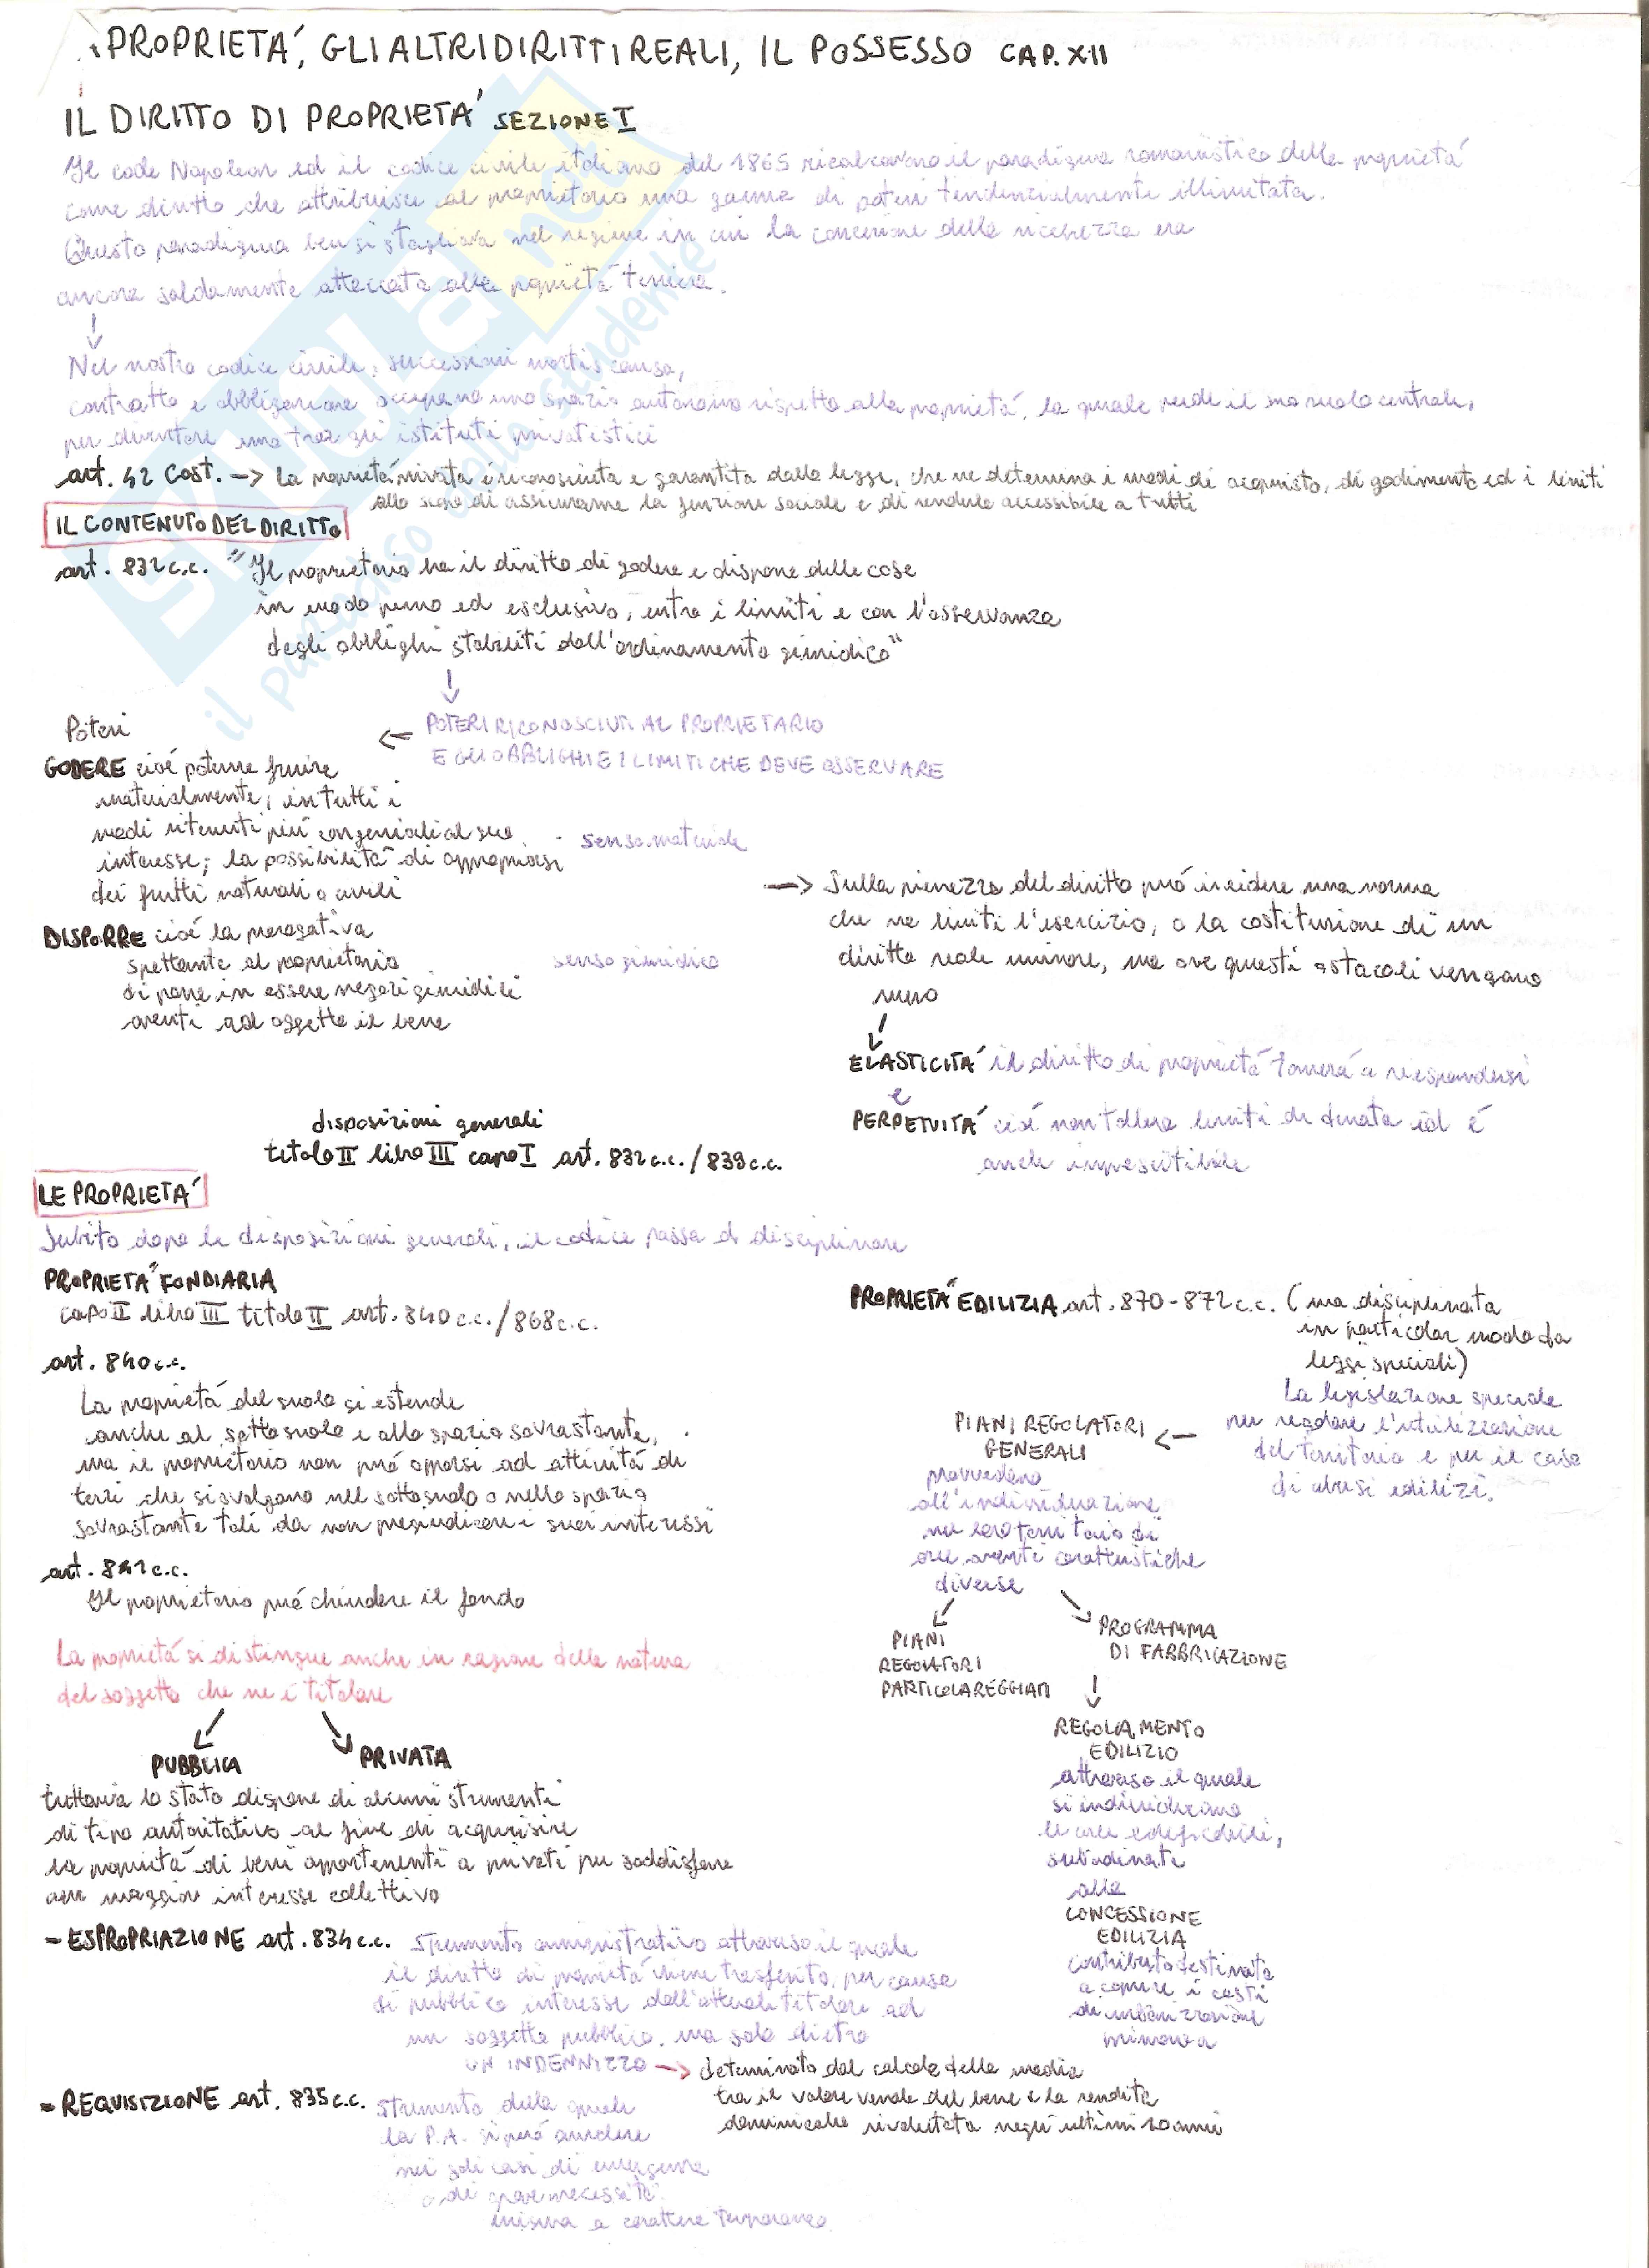 PROPRIETA', GLI ALTRI DIRITTI REALI, IL POSSESSO CAP. XII
IL DIRITTO DI PROPRIETA' SEZIONE I
Il code Napoleon ed il codice civile italiano del 1865 ricalcavano il paradigma romanistico della proprietà
come diritto che attribuisce al proprietario una gamma di poteri tendenzialmente illimitata.
Questo paradigma ben si stagliava nel regime in cui la concezione della ricchezza era
ancora saldamente attaccata alla proprietà terriera.
Nel nostro codice civile, successioni mortis causa,
contratto e obbligazione occupano uno spazio autonomo rispetto alla proprietà, la quale perde il suo ruolo centrale,
per diventare una tra gli istituti privatistici
art. 42 Cost. -> La proprietà privata è riconosciuta e garantita dalla legge, che ne determina i modi di acquisto, di godimento ed i limiti
allo scopo di assicurarne la funzione sociale e di renderla accessibile a tutti
IL CONTENUTO DEL DIRITTO
art. 832 c.c. "Il proprietario ha il diritto di godere e disporre delle cose
in modo pieno ed esclusivo, entro i limiti e con l'osservanza
degli obblighi stabiliti dall'ordinamento giuridico"
POTERI RICONOSCIUTI AL PROPRIETARIO
E GLI OBBLIGHI E I LIMITI CHE DEVE OSSERVARE
Poteri
GODERE cioé poterne fruire
materialmente, in tutti i
modi ritenuti più congeniali al suo
interesse; la possibilità di appropriarsi
dei frutti naturali o civili
- senso materiale
DISPORRE cioé la prerogativa
spettante al proprietario
di porre in essere negozi giuridici
aventi ad oggetto il bene
senso giuridico
-> Sulla pienezza del diritto può incidere una norma
che ne limiti l'esercizio, o la costituzione di un
diritto reale minore, ma ove questi ostacoli vengano
meno
ELASTICITA' il diritto di proprietà tornerà a riespandersi
e
PERPETUITA' cioé non tollera limiti di durata ed é
anche imprescrittibile
disposizioni generali
titolo II libro III capo I art. 832 c.c. / 839 c.c.
LE PROPRIETA'
Subito dopo le disposizioni generali, il codice passa a disciplinare
PROPRIETA' FONDIARIA
capo II libro III titolo II art. 840 c.c. / 868 c.c.
art. 840 c.c.
La proprietà del suolo si estende
anche al sottosuolo e allo spazio sovrastante,
ma il proprietario non può opporsi ad attività di
terzi che si svolgano nel sottosuolo o nello spazio
sovrastante tali da non pregiudicare i suoi interessi
art. 841 c.c.
Il proprietario può chiudere il fondo
La proprietà si distingue anche in ragione della natura
del soggetto che ne é titolare
PUBBLICA PRIVATA
tuttavia lo stato dispone di alcuni strumenti
di tipo autoritativo al fine di acquisire
la proprietà di beni appartenenti a privati per soddisfare
un maggior interesse collettivo
- ESPROPRIAZIONE art. 834 c.c. strumento amministrativo attraverso il quale
il diritto di proprietà viene trasferito, per causa
di pubblico interesse dall'attuale titolare ad
un soggetto pubblico, ma solo dietro
UN INDENNIZZO -> determinato dal calcolo della media
tra il valore venale del bene e la rendita
dominicale rivalutata negli ultimi 10 anni
- REQUISIZIONE art. 835 c.c. strumento della quale
la P.A. si può avvalere
nei soli casi di emergenza
o di grave necessità
misura a carattere temporaneo
PROPRIETA' EDILIZIA art. 870-872 c.c. (ma disciplinata
in particolar modo da
leggi speciali)
La legislazione speciale
per regolare l'utilizzazione
del territorio e per il caso
di abusi edilizi.
PIANI REGOLATORI
GENERALI
provvedono
all'individuazione
nel loro territorio di
aree aventi caratteristiche
diverse
PIANI
REGOLATORI
PARTICOLAREGGIATI
PROGRAMMA
DI FABBRICAZIONE
REGOLAMENTO
EDILIZIO
attraverso il quale
si individuano
le aree edificabili,
subordinate
alla
CONCESSIONE
EDILIZIA
contributo destinato
a coprire i costi
di urbanizzazione
primaria
SKUOLA.net
il paradiso dello studente